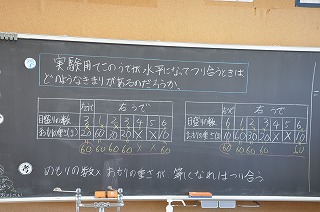 実験用てこのうでが水平になってつり合うときは
どのようなきまりがあるのだろうか。
左うで 右うで
目盛りの数 3 1 2 3 4 5 6
おもりの重さ(g) 20 60 30 20 X X 10
60 60 60 60 X X 60
左うで 右うで
目盛りの数 6 1 2 3 4 5 6
おもりの重さ(g) 10 60 30 20 X X 10
60 60 60 60 60
めもりの数×おもりの重さが 等しくなればつり合う